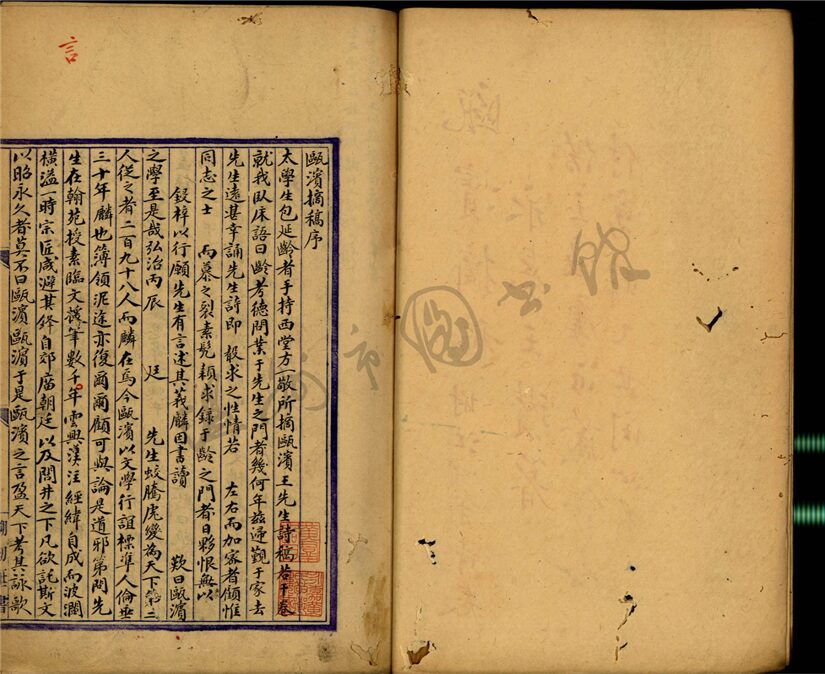 言
甌濱摘稿序
太學生包延齡者手持西堂方一敬所摘甌濱王先生詩稿若干卷
就我臥床語曰齡考德問業于先生之門者幾何年茲遄覲于家去
先生遠甚幸誦先生詩即 殽求之性情若 左右而加察者顧惟
同志之士 而慕之裂素髡穎求录于齡之門者日夥恨無以
鋟梓以行願先生有言述其義麟因書讀 歎曰甌濱
之學至是哉弘治丙辰 廷 先生蛟騰虎變為天下第二
人從之者二百九十八人而麟在焉今甌濱以文學行誼標準人倫垂
三十年麟也簿領泥途亦復爾爾顧可與論是道邪第閱先
生在翰苑授素臨文 筆數千年雲興漢注經緯自成而波瀾
橫溢一時宗匠咸避其鋒自郊廟朝廷以及閭井之下凡欲託斯文
以昭永久者莫不曰甌濱甌濱于是甌濱之言盈天下考其詠歌